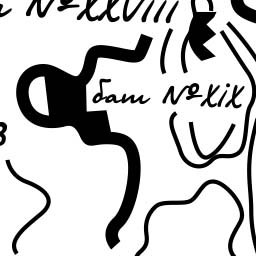 №XXVIII
бат №XiX